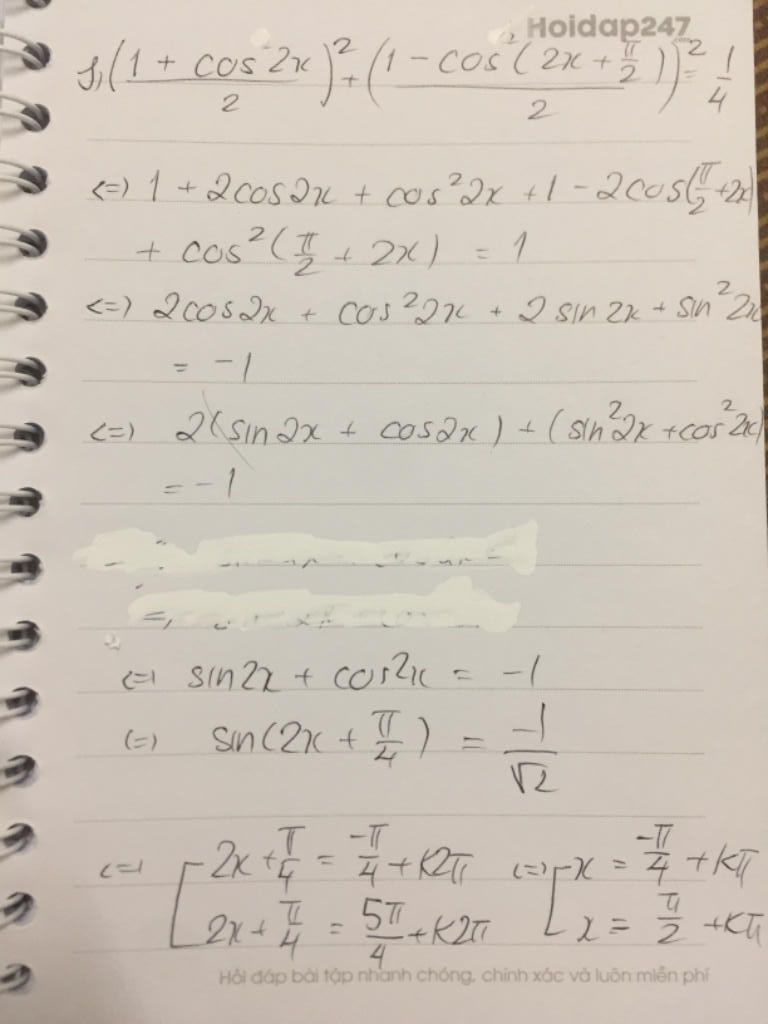 Hoidap247
f, ((1 + cos 2x)/2)² + ((1 - cos²(2x + π/2))/2)² = 1/4
<=> 1 + 2cos2x + cos²2x + 1 - 2cos(π/2 + 2x)
+ cos²(π/2 + 2x) = 1
<=> 2cos2x + cos²2x + 2 sin2x + sin²2x
= -1
<=> 2(sin2x + cos2x) + (sin²2x + cos²2x)
= -1
<=> sin2x + cos2x = -1
<=> sin(2x + π/4) = -1/√2
<=> [ 2x + π/4 = -π/4 + k2π <=> [ x = -π/4 + kπ
2x + π/4 = 5π/4 + k2π x = π/2 + kπ
Hỏi đáp bài tập nhanh chóng, chính xác và luôn miễn phí